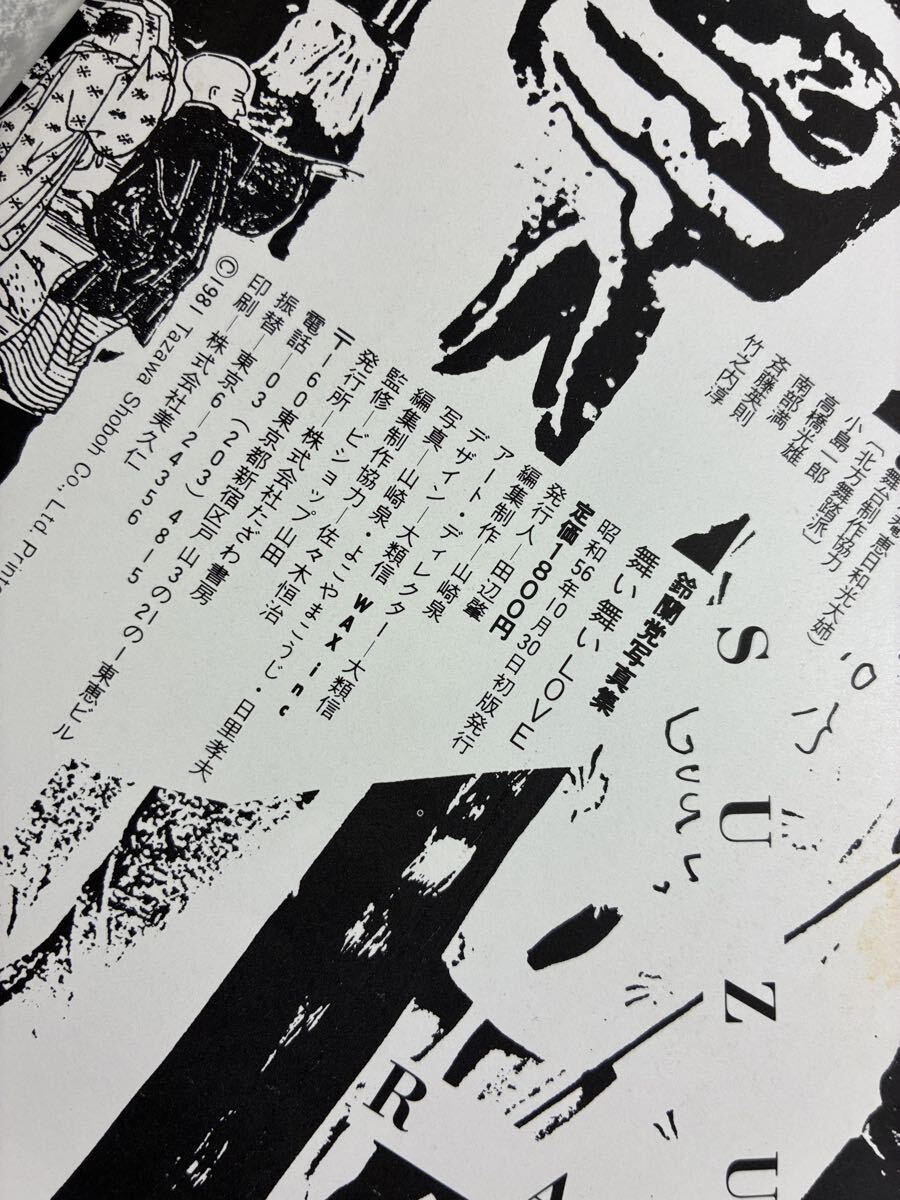 恵日和光大姉)
舞台制作協力
〔北方舞踏派〕
小島一郎
高橋光雄
南部満
斉藤英則
竹之内淳
鈴蘭党写真集
舞い舞いLOVE
昭和56年10月30日初版発行
定価1800円
発行人—田辺肇
編集制作—山崎泉
アート・ディレクター—大類信
デザイン—山崎泉・WAX inc
写真—大類信
編集制作協力—よこやまこうじ・日里孝夫・佐々木恒治
監修—ビショップ山田
発行所—株式会社たざわ書房
〒160東京都新宿区戸山3の21の1東恵ビル
電話—03(203)4815
振替—東京6-24356
印刷—株式会社美久仁
©1981 Tazawa Shoboh Co., Ltd. Print
SUZU
RA